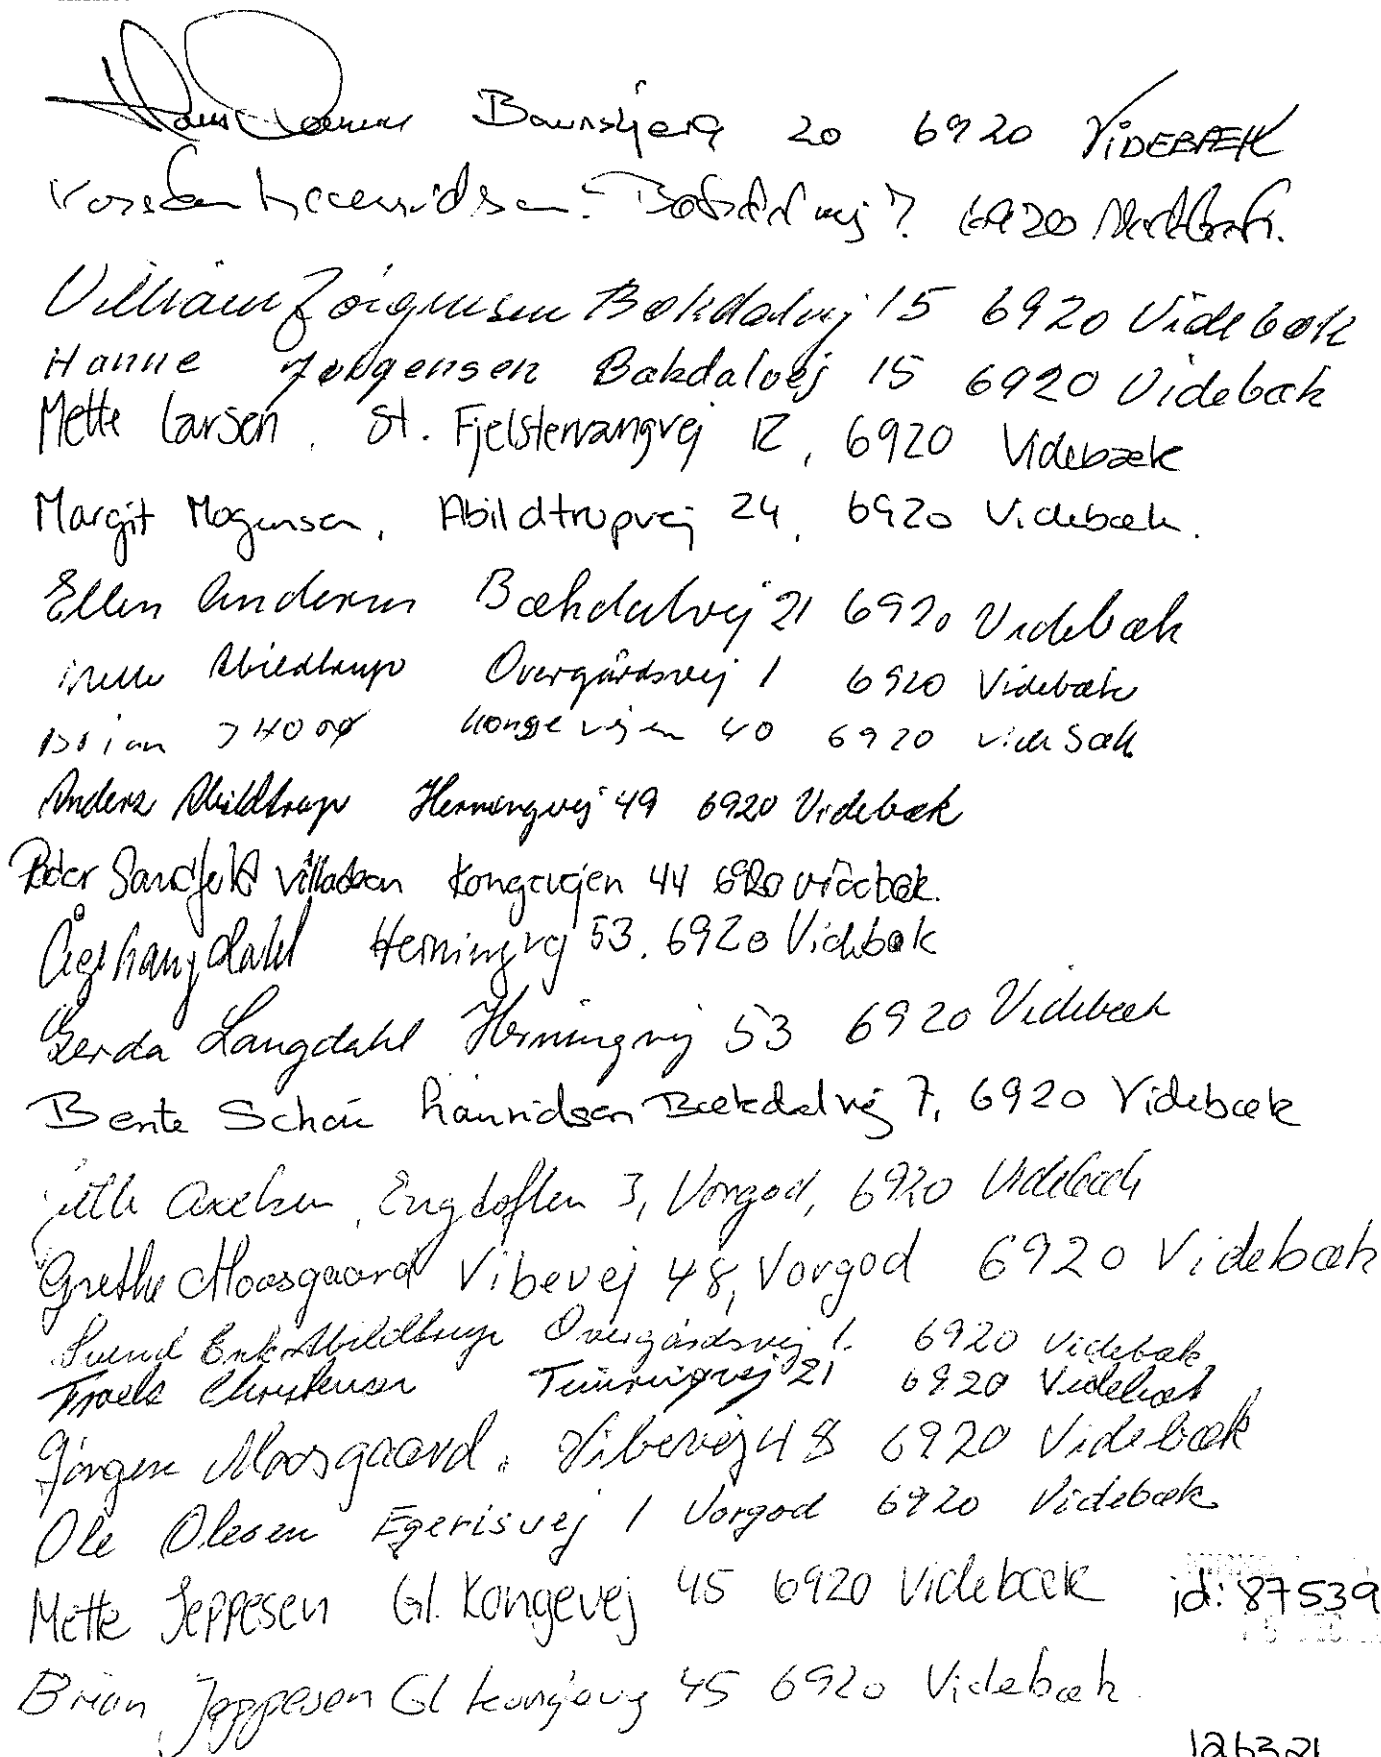 Baunsbjerg 20 6920 VIDEBÆK
6920
William Jørgensen Bækdalvej 15 6920 Videbæk
Hanne Jørgensen Bækdalvej 15 6920 Videbæk
Mette Larsen, St. Fjelstervangvej 12, 6920 Videbæk
Margit Mogensen, Abildtrupvej 24, 6920 Videbæk.
Ellen Andersen Bækdalvej 21 6920 Videbæk
Abildtrup Overgårdsvej 1 6920 Videbæk
Brian Kongevejen 40 6920 Videbæk
Anders Abildtrup Herningvej 49 6920 Videbæk
Peder Sandfeld Villadsen Kongevejen 44 6920 Videbæk.
Åge Langdahl Herningvej 53. 6920 Videbæk
Gerda Langdahl Herningvej 53 6920 Videbæk
Bente Schou Lauridsen Bækdalvej 7, 6920 Videbæk
Axelsen, Engtoften 3, Vorgod, 6920 Videbæk
Grethe Moosgaard Vibevej 48, Vorgod 6920 Videbæk
Svend Erik Abildtrup Overgårdsvej 1. 6920 Videbæk
Troels Christensen Timringvej 21 6920 Videbæk
Jørgen Moosgaard. Vibevej 48 6920 Videbæk
Ole Olesen Egerisvej 1 Vorgod 6920 Videbæk
Mette Jeppesen Gl. Kongevej 45 6920 Videbæk id: 87539
Brian Jeppesen Gl Kongevej 45 6920 Videbæk.
126321